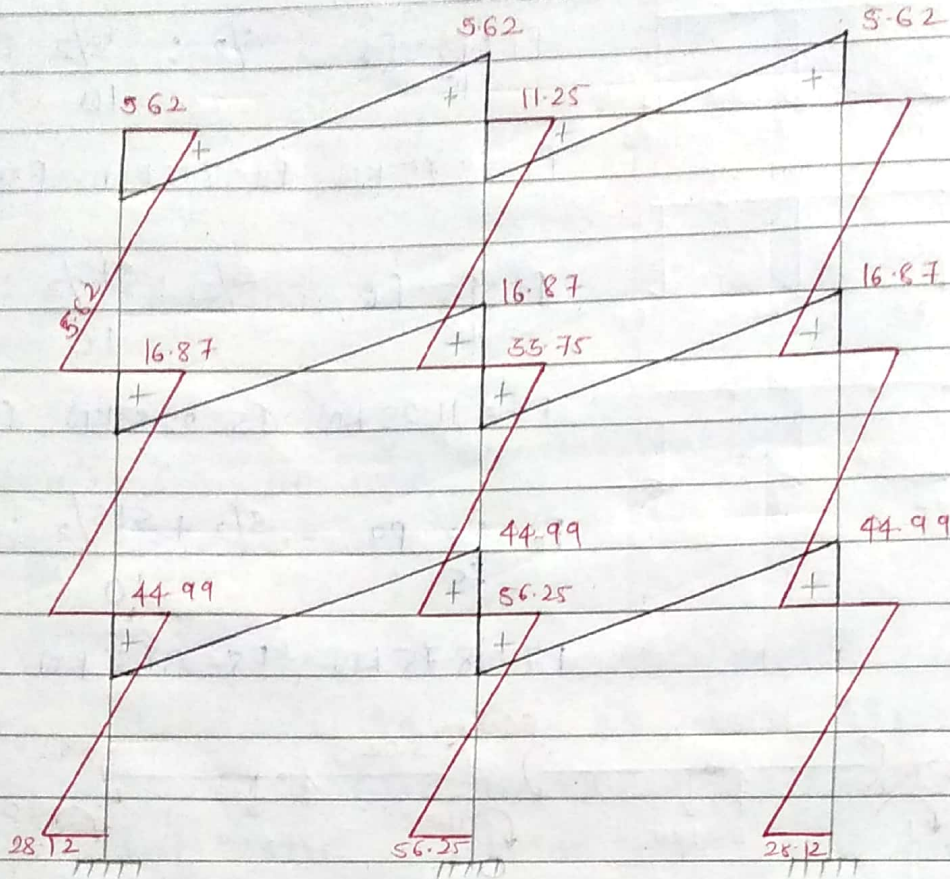 5.62
5.62
5.62
11.25
+
+
+
+
5.62
16.87
16.87
16.87
33.75
+
+
+
+
44.99
44.99
44.99
56.25
+
+
+
+
28.12
56.25
28.12